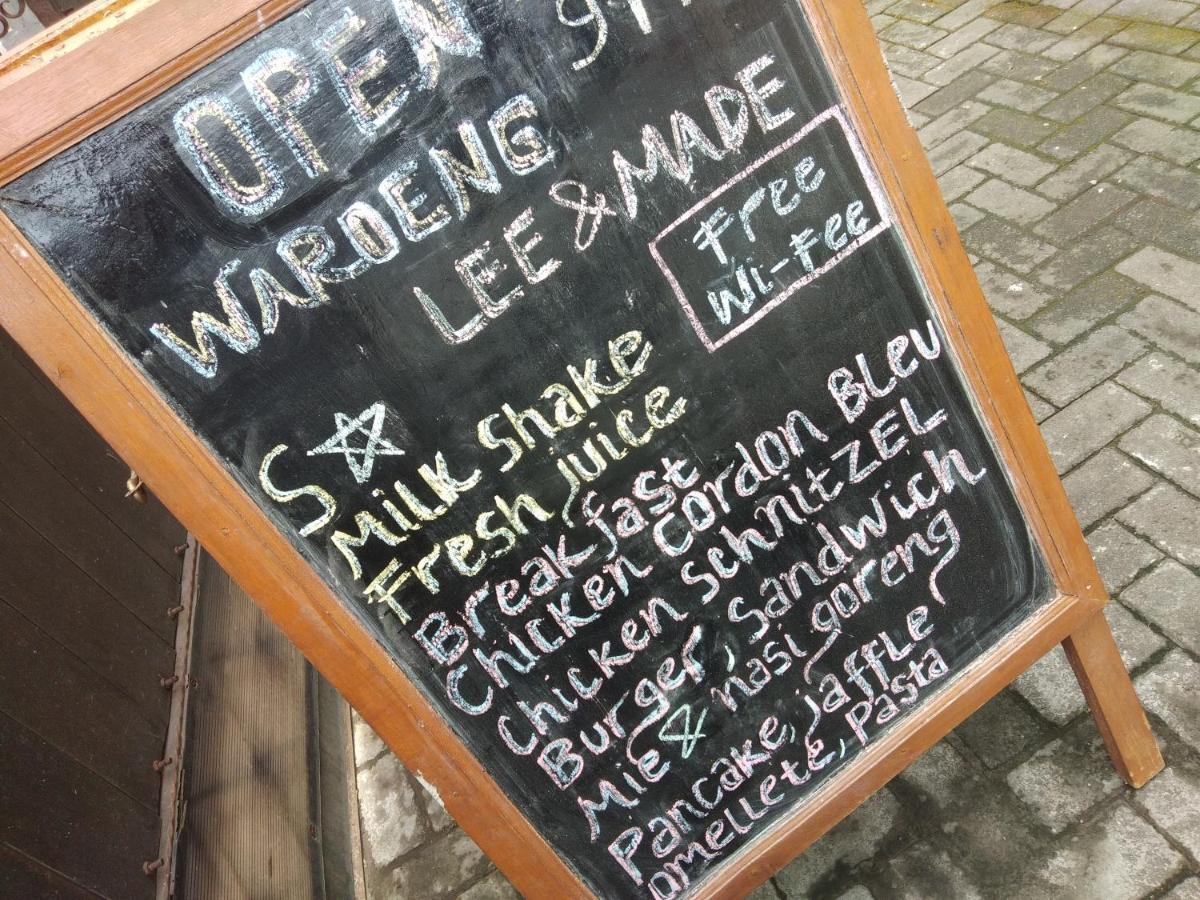 OPEN
WAROENG
LEE & MADE
Free
Wi-Fee
S☆
Milk Shake
Fresh juice
Breakfast
Chicken Cordon Bleu
Chicken SchnitZEL
Burger, Sandwich
Mie & nasi goreng
Pancake, jaffLe
omellete, pasta